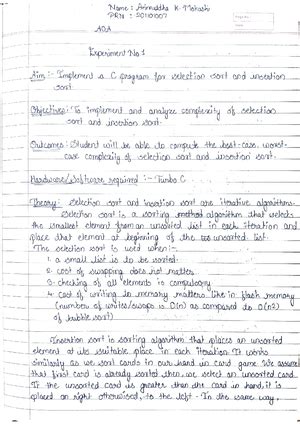 Name : Aniruddha K. Mokashi
PRN : 20110100?
AOA
Experiment No 1
Aim :- Implement a C program for selection sort and insertion
sort.
Objectives: To implement and analyze complexity of selection
sort and insertion sort.
Outcomes: Student will be able to compute the best-case, worst-
case complexity of selection sort and insertion sort.
Hardware/Software required :- Turbo C
Theory:- Selection sort and insertion sort are iterative algorithms.
Selection sort is a sorting method algorithm that selects
the smallest element from an unsorted list in each iteration and
place that element at beginning of the unsorted list.
The selection sort is used when :-
1. a small list is to be sorted.
2. cost of swapping does not matter
3. checking of all elements is compulsory
4. Cost of writing to memory matters like in flash memory
(number of writes/swaps is O(n) as compared to O(n2)
of bubble sort)
Insertion sort is sorting algorithm that places an unsorted
element at its suitable place in each iteration. It works
similarly as we sort cards in our hand in card game. We assume
that first card is already sorted then, we select an unsorted card.
If the unsorted card is greater than the card in hand, it is
placed on right otherwised, to the left. In the same way,